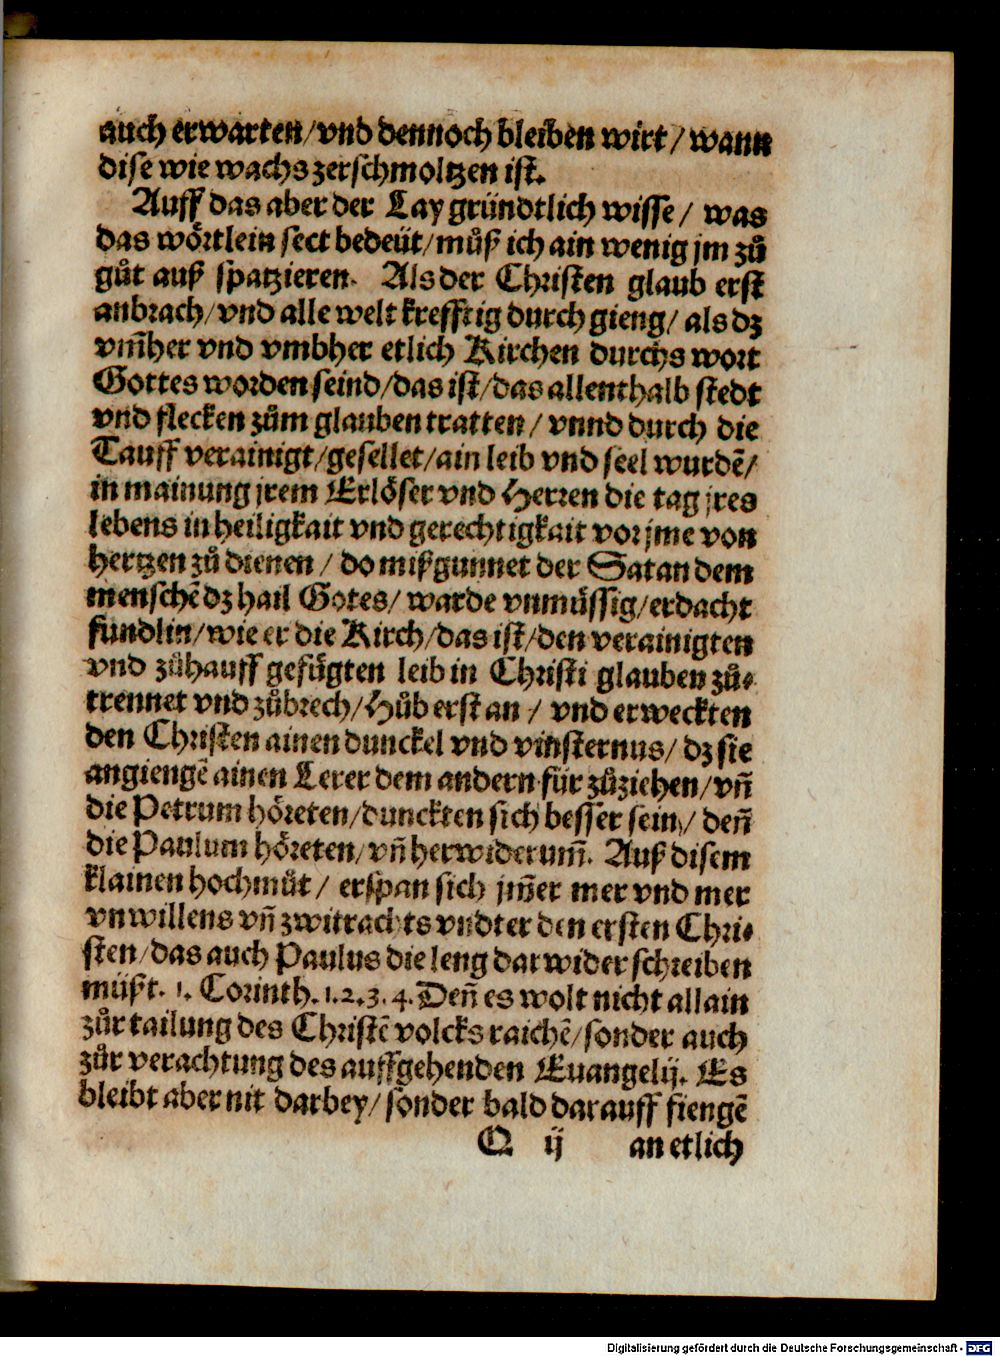 auch erwarten/vnd dennoch bleiben wirt/wann
dise wie wachs zerschmoltzen ist.
Auff das aber der Lay gründtlich wisse/ was
das wörtlein sect bedeüt/můß ich ain wenig jm zů
gůt auß spatzieren. Als der Christen glaub erst
anbrach/vnd alle welt krefftig durch gieng/ als dz
vm̃her vnd vmbher etlich Kirchen durchs wort
Gottes worden seind/das ist/das allenthalb stedt
vnd flecken zům glauben tratten/ vnnd durch die
Tauff verainigt/gesellet/ain leib vnd seel wurdẽ/
in mainung jrem Erlöser vnd Herren die tag jres
lebens in heiligkait vnd gerechtigkait vor jme von
hertzen zů dienen/ do mißgunnet der Satan dem
menschẽ dz hail Gotes/ warde vnmüssig/erdacht
fündlin/wie er die Kirch/das ist/den verainigten
vnd zůhauff gefügten leib in Christi glauben zů⸗
trennet vnd zůbrech/Hůb erst an/ vnd erweckten
den Christen ainen dunckel vnd vinsternus/ dz sie
angiengẽ ainen Lerer dem andern für zůziehen/vñ
die Petrum höreten/dunckten sich besser sein/ deñ
die Paulum höreten/vñ herwiderum̃. Auß disem
klainen hochmůt/ erspan sich jm̃er mer vnd mer
vnwillens vñ zwitrachts vndter den ersten Chri⸗
sten/das auch Paulus die leng darwider schreiben
müßt. 1. Corinth. 1.2.3.4. Deñ es wolt nicht allain
zůr tailung des Christẽ volcks raichẽ/sonder auch
zůr verachtung des auffgehenden Euangelij. Es
bleibt aber nit darbey/sonder bald darauff fiengẽ
Q ij an etlich
Digitalisierung gefördert durch die Deutsche Forschungsgemeinschaft - DFG